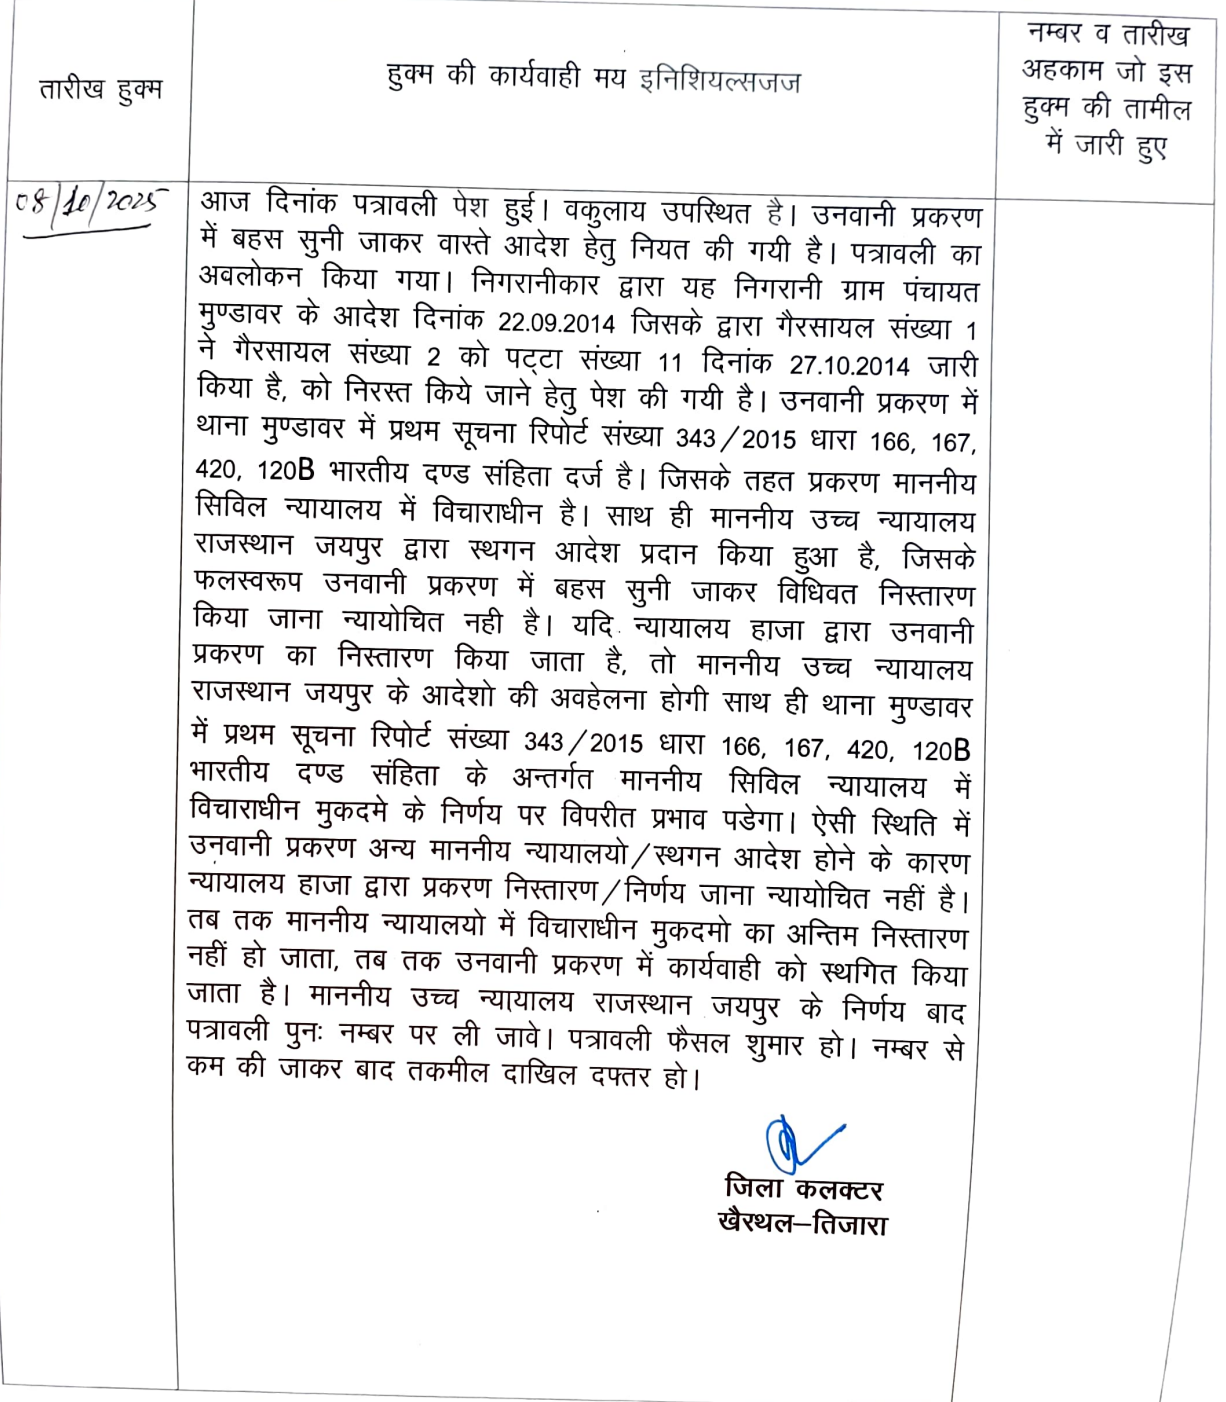 तारीख हुक्म
हुक्म की कार्यवाही मय इनिशियल्सजज
नम्बर व तारीख
अहकाम जो इस
हुक्म की तामील
में जारी हुए
08/10/2025
आज दिनांक पत्रावली पेश हुई। वकुलाय उपस्थित है। उनवानी प्रकरण
में बहस सुनी जाकर वास्ते आदेश हेतु नियत की गयी है। पत्रावली का
अवलोकन किया गया। निगरानीकार द्वारा यह निगरानी ग्राम पंचायत
मुण्डावर के आदेश दिनांक 22.09.2014 जिसके द्वारा गैरसायल संख्या 1
ने गैरसायल संख्या 2 को पट्टा संख्या 11 दिनांक 27.10.2014 जारी
किया है, को निरस्त किये जाने हेतु पेश की गयी है। उनवानी प्रकरण में
थाना मुण्डावर में प्रथम सूचना रिपोर्ट संख्या 343/2015 धारा 166, 167,
420, 120B भारतीय दण्ड संहिता दर्ज है। जिसके तहत प्रकरण माननीय
सिविल न्यायालय में विचाराधीन है। साथ ही माननीय उच्च न्यायालय
राजस्थान जयपुर द्वारा स्थगन आदेश प्रदान किया हुआ है, जिसके
फलस्वरूप उनवानी प्रकरण में बहस सुनी जाकर विधिवत निस्तारण
किया जाना न्यायोचित नही है। यदि न्यायालय हाजा द्वारा उनवानी
प्रकरण का निस्तारण किया जाता है, तो माननीय उच्च न्यायालय
राजस्थान जयपुर के आदेशो की अवहेलना होगी साथ ही थाना मुण्डावर
में प्रथम सूचना रिपोर्ट संख्या 343/2015 धारा 166, 167, 420, 120B
भारतीय दण्ड संहिता के अन्तर्गत माननीय सिविल न्यायालय में
विचाराधीन मुकदमे के निर्णय पर विपरीत प्रभाव पडेगा। ऐसी स्थिति में
उनवानी प्रकरण अन्य माननीय न्यायालयो/स्थगन आदेश होने के कारण
न्यायालय हाजा द्वारा प्रकरण निस्तारण/निर्णय जाना न्यायोचित नहीं है।
तब तक माननीय न्यायालयो में विचाराधीन मुकदमो का अन्तिम निस्तारण
नहीं हो जाता, तब तक उनवानी प्रकरण में कार्यवाही को स्थगित किया
जाता है। माननीय उच्च न्यायालय राजस्थान जयपुर के निर्णय बाद
पत्रावली पुनः नम्बर पर ली जावे। पत्रावली फैसल शुमार हो। नम्बर से
कम की जाकर बाद तकमील दाखिल दफ्तर हो।
जिला कलक्टर
खैरथल–तिजारा